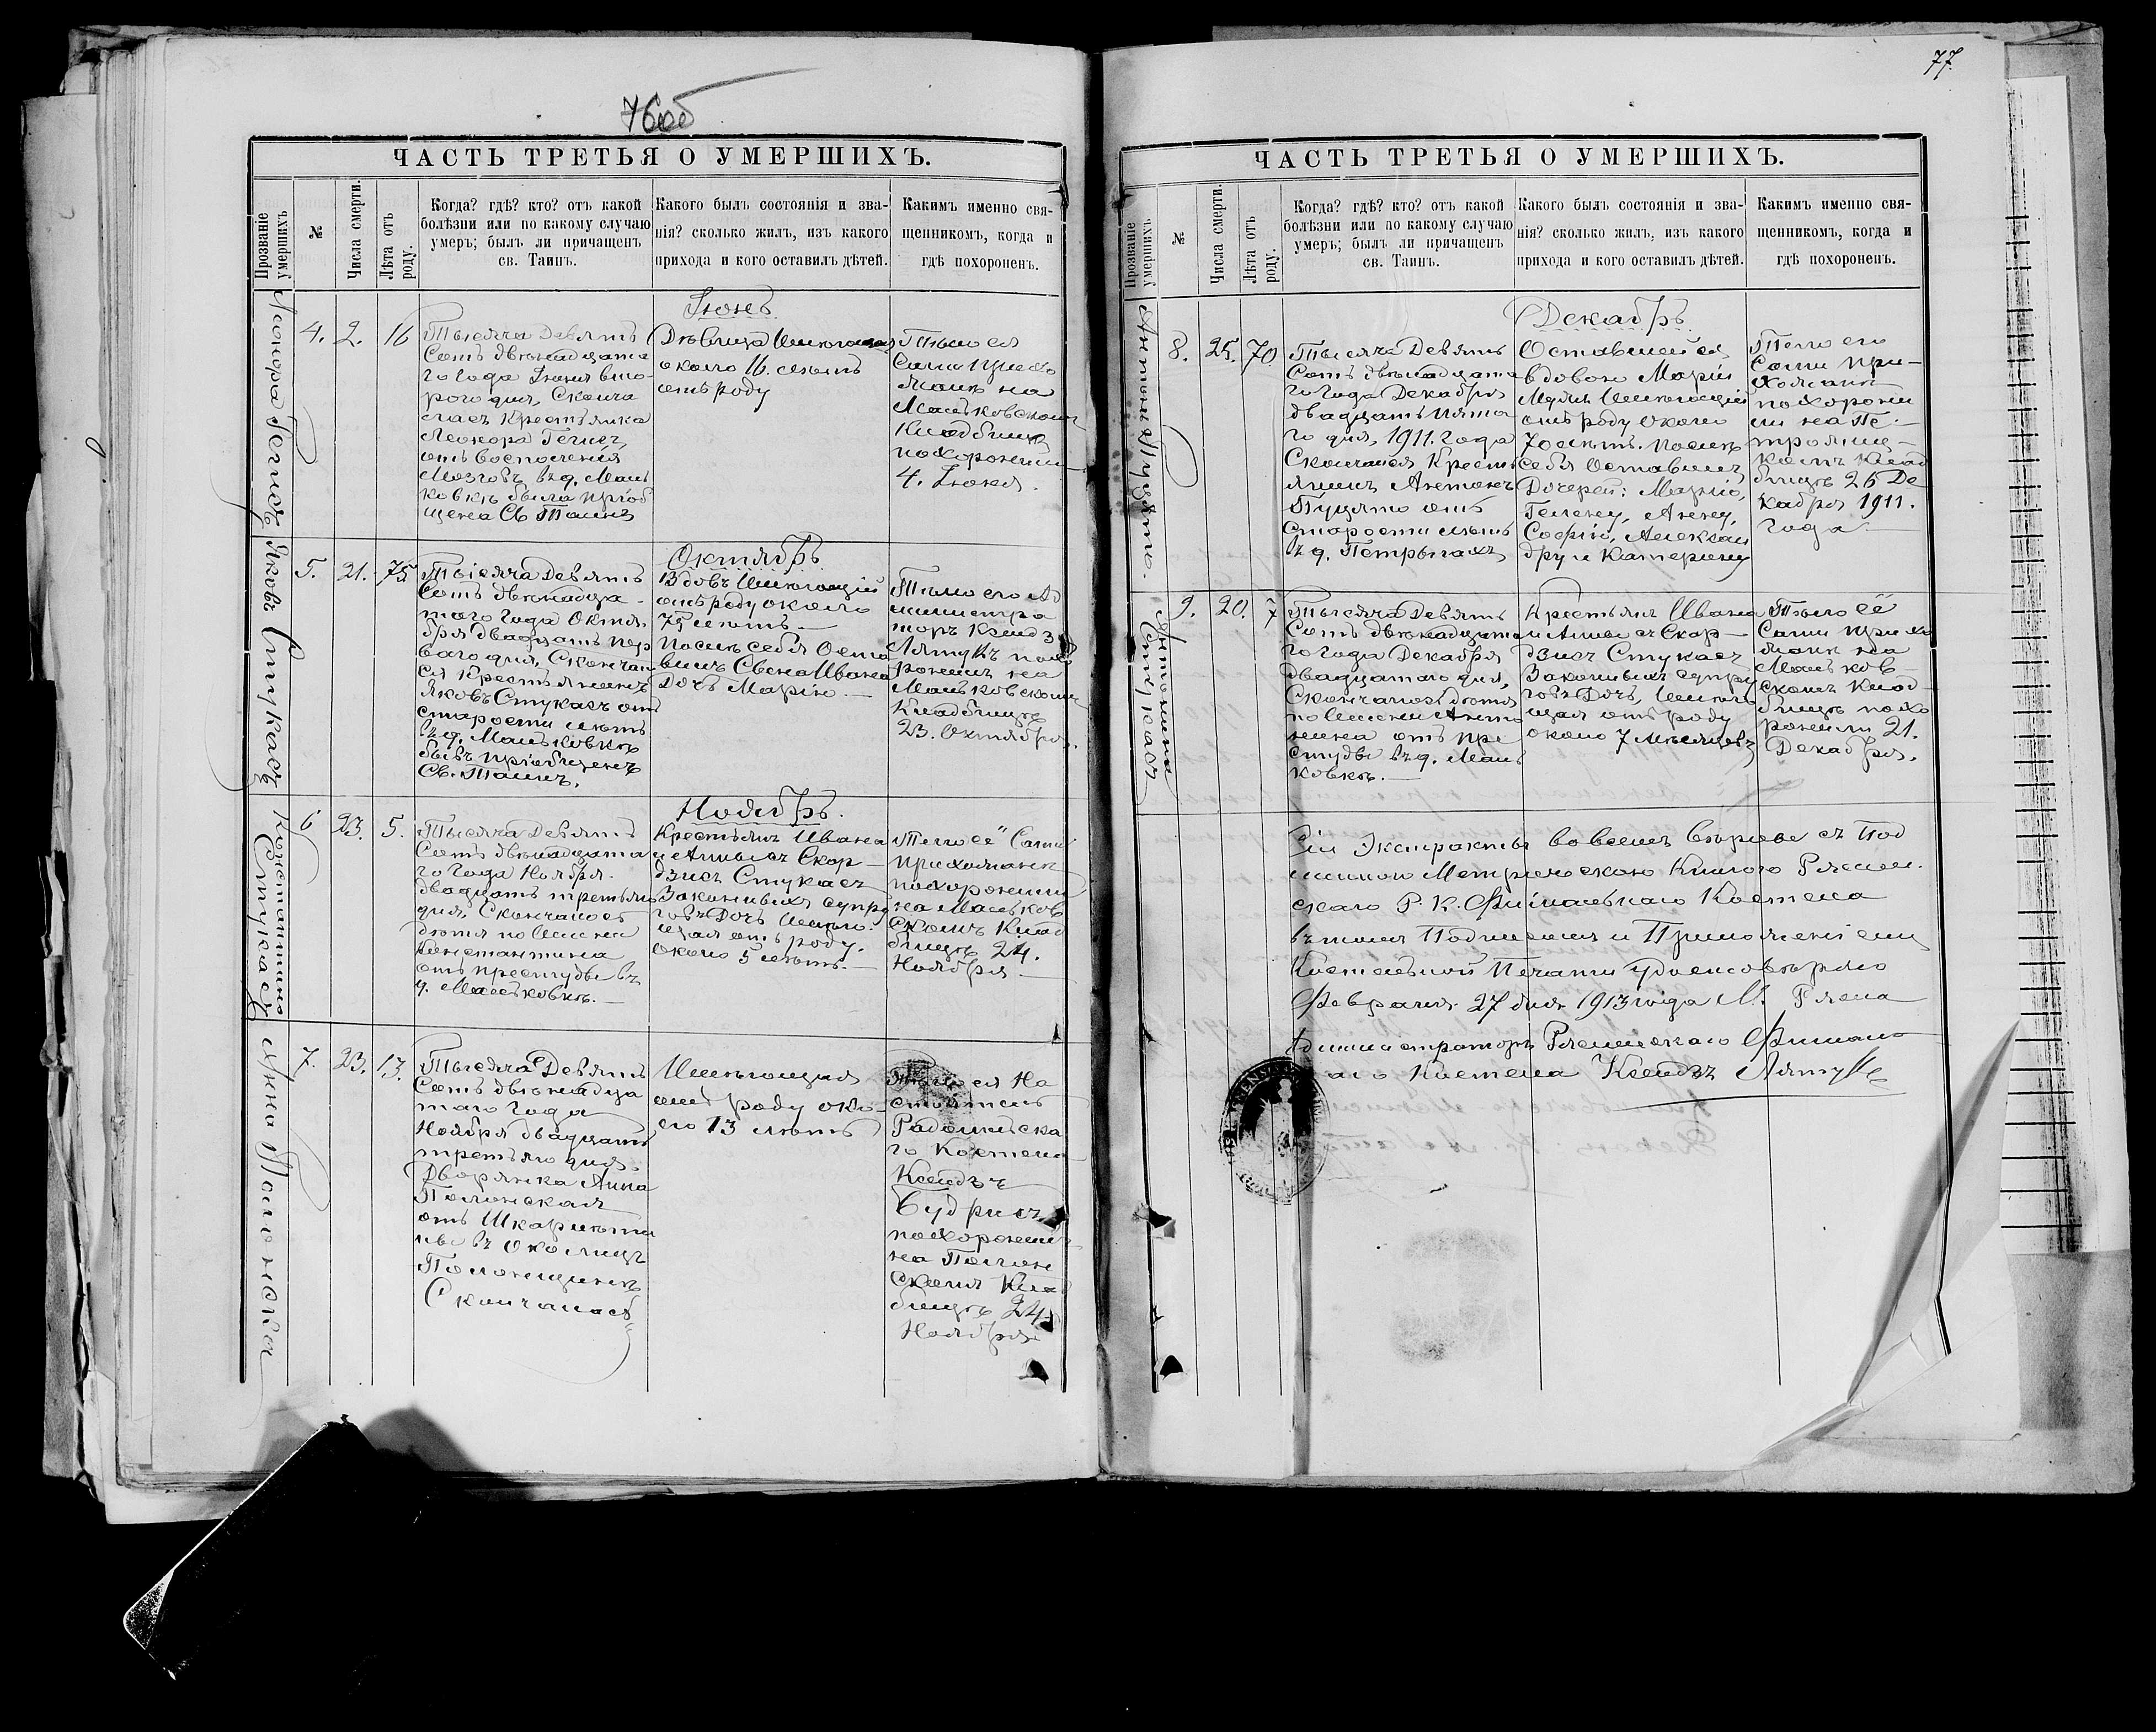 76об
ЧАСТЬ ТРЕТЬЯ О УМЕРШИХЪ.
Прозваніе умершихъ
№
Числа смерти.
Лѣта отъ роду.
Когда? гдѣ? кто? отъ какой
болѣзни или по какому случаю
умеръ; былъ ли причащенъ
св. Таинъ.
Какого былъ состоянія и зва-
нія? сколько жилъ, изъ какого
прихода и кого оставилъ дѣтей.
Какимъ именно свя-
щенникомъ, когда и
гдѣ похороненъ.
Іюнь
4.
2.
16
Тысяча Девять
Сотъ двѣнадцата
го года Іюня вто
рого дня, Сконча
лась Крестьянка
Леонора
отъ воспаленія
Мозговъ въ д. Мань
ковкѣ была пріоб
щена Св. Таинъ
Дѣвица Имѣющая
около 16. лѣтъ
отъ роду
Тѣло ея
Сами прихо
жане на
Маньковскомъ
Кладбищѣ
похоронили
4. Іюня.
Яковъ Стукасъ
Октябрь
5.
21.
75
Тысяча Девять
Сотъ двѣнадца-
таго года Октя
бря двадцать пер
ваго дня, Скончал
ся Крестьянинъ
Яковъ Стукасъ отъ
старости лѣтъ
въ д. Маньковкѣ
бывъ пріобщенъ
Св. Таинъ.
Вдовъ Имѣющій
отъ роду около
75 лѣтъ.—
Послѣ себя Оста
вилъ Сына Ивана
Дочь Марію.—
Тѣло его Ад
министра
торъ Ксендз
Лятукъ похо
ронилъ на
Маньковскомъ
Кладбищѣ
23. Октября.
Константина Стукасъ
Ноябрь.
6
23.
5.
Тысяча Девять
Сотъ двѣнадцата
го года Ноября
двадцать третьяго
дня, Скончалось
дитя по Имени
Константина
отъ простуды въ
д. Маньковкѣ.—
Крестьянъ Ивана
и Анны съ Скор-
дзисъ Стукасъ
Законныхъ супру
говъ Дочь Имѣю
щая отъ роду
около 5 лѣтъ.—
Тѣло её Сами
прихожане
похоронили
на Маньков
скомъ Клад
бищѣ 24.
Ноября
Анна Полонская
7.
23.
13.
Тысяча Девять
Сотъ двѣнадца
таго года
Ноября двадцать
третьяго дня
Дворянка Анна
Полонская
отъ Шкарлати
ны въ Околицѣ
Полонщинѣ
Скончалась
Имѣющая
отъ роду око-
ло 13 лѣтъ
Тѣло ея На
стоятель
го Костела
Ксендзъ
Будрисъ
похоронилъ
на Полон
скомъ Клад
бищѣ 24
Ноября
77.
ЧАСТЬ ТРЕТЬЯ О УМЕРШИХЪ.
Прозваніе умершихъ
№
Числа смерти.
Лѣта отъ роду.
Когда? гдѣ? кто? отъ какой
болѣзни или по какому случаю
умеръ; былъ ли причащенъ
св. Таинъ.
Какого былъ состоянія и зва-
нія? сколько жилъ, изъ какого
прихода и кого оставилъ дѣтей.
Какимъ именно свя-
щенникомъ, когда и
гдѣ похороненъ.
Антонъ Пуцято.
Декабрь
8.
25.
70
Тысяча Девять
Сотъ двѣнадцата
го года Декабря
двадцать пята
го дня, 1911. года
Скончался Кресть
янинъ Антонъ
Пуцято отъ
старости лѣтъ
въ д.
Оставшейся
вдовою Маріи
Мужъ Имѣющій
отъ роду около
70 лѣтъ. Послѣ
себя Оставилъ
Дочерей: Марію,
Гелену, Анну,
Софію, Алексан
дру и Катерину
Тѣло его
Сами при-
хожане
похорони
ли на Пе-
комъ Клад
бищѣ 26 Де
кабря 1911.
года
Антонина Стукасъ
9.
20.
7
Тысяча Девять
Сотъ двѣнадцата
го года Декабря
двадцатаго дня,
Скончалось дитя
по Имени Анто
нина отъ про
студы въ д. Мань
ковкѣ.—
Крестьянъ Ивана
и Анны съ Скор-
дзисъ Стукасъ
Законныхъ супру
говъ Дочь, Имѣю
щая отъ роду
около 7 Мѣсяцевъ
Тѣло её
Сами прихо
жане на
Маньков-
скомъ Клад-
бищѣ похо
ронили 21.
Декабря.
Сіи Экстракты во всемъ вѣрные съ Под
линною Метрическою Книгою Рясен
скаго Р. К. Филіальнаго Костела
въ томъ Подписомъ и Приложеніемъ
Костельной Печати Удостовѣряю
Февраля 27 дня 1913 года М. Рясна
Администраторъ Рясненскаго Филіаль
наго Костела Ксендзъ Лятукъ